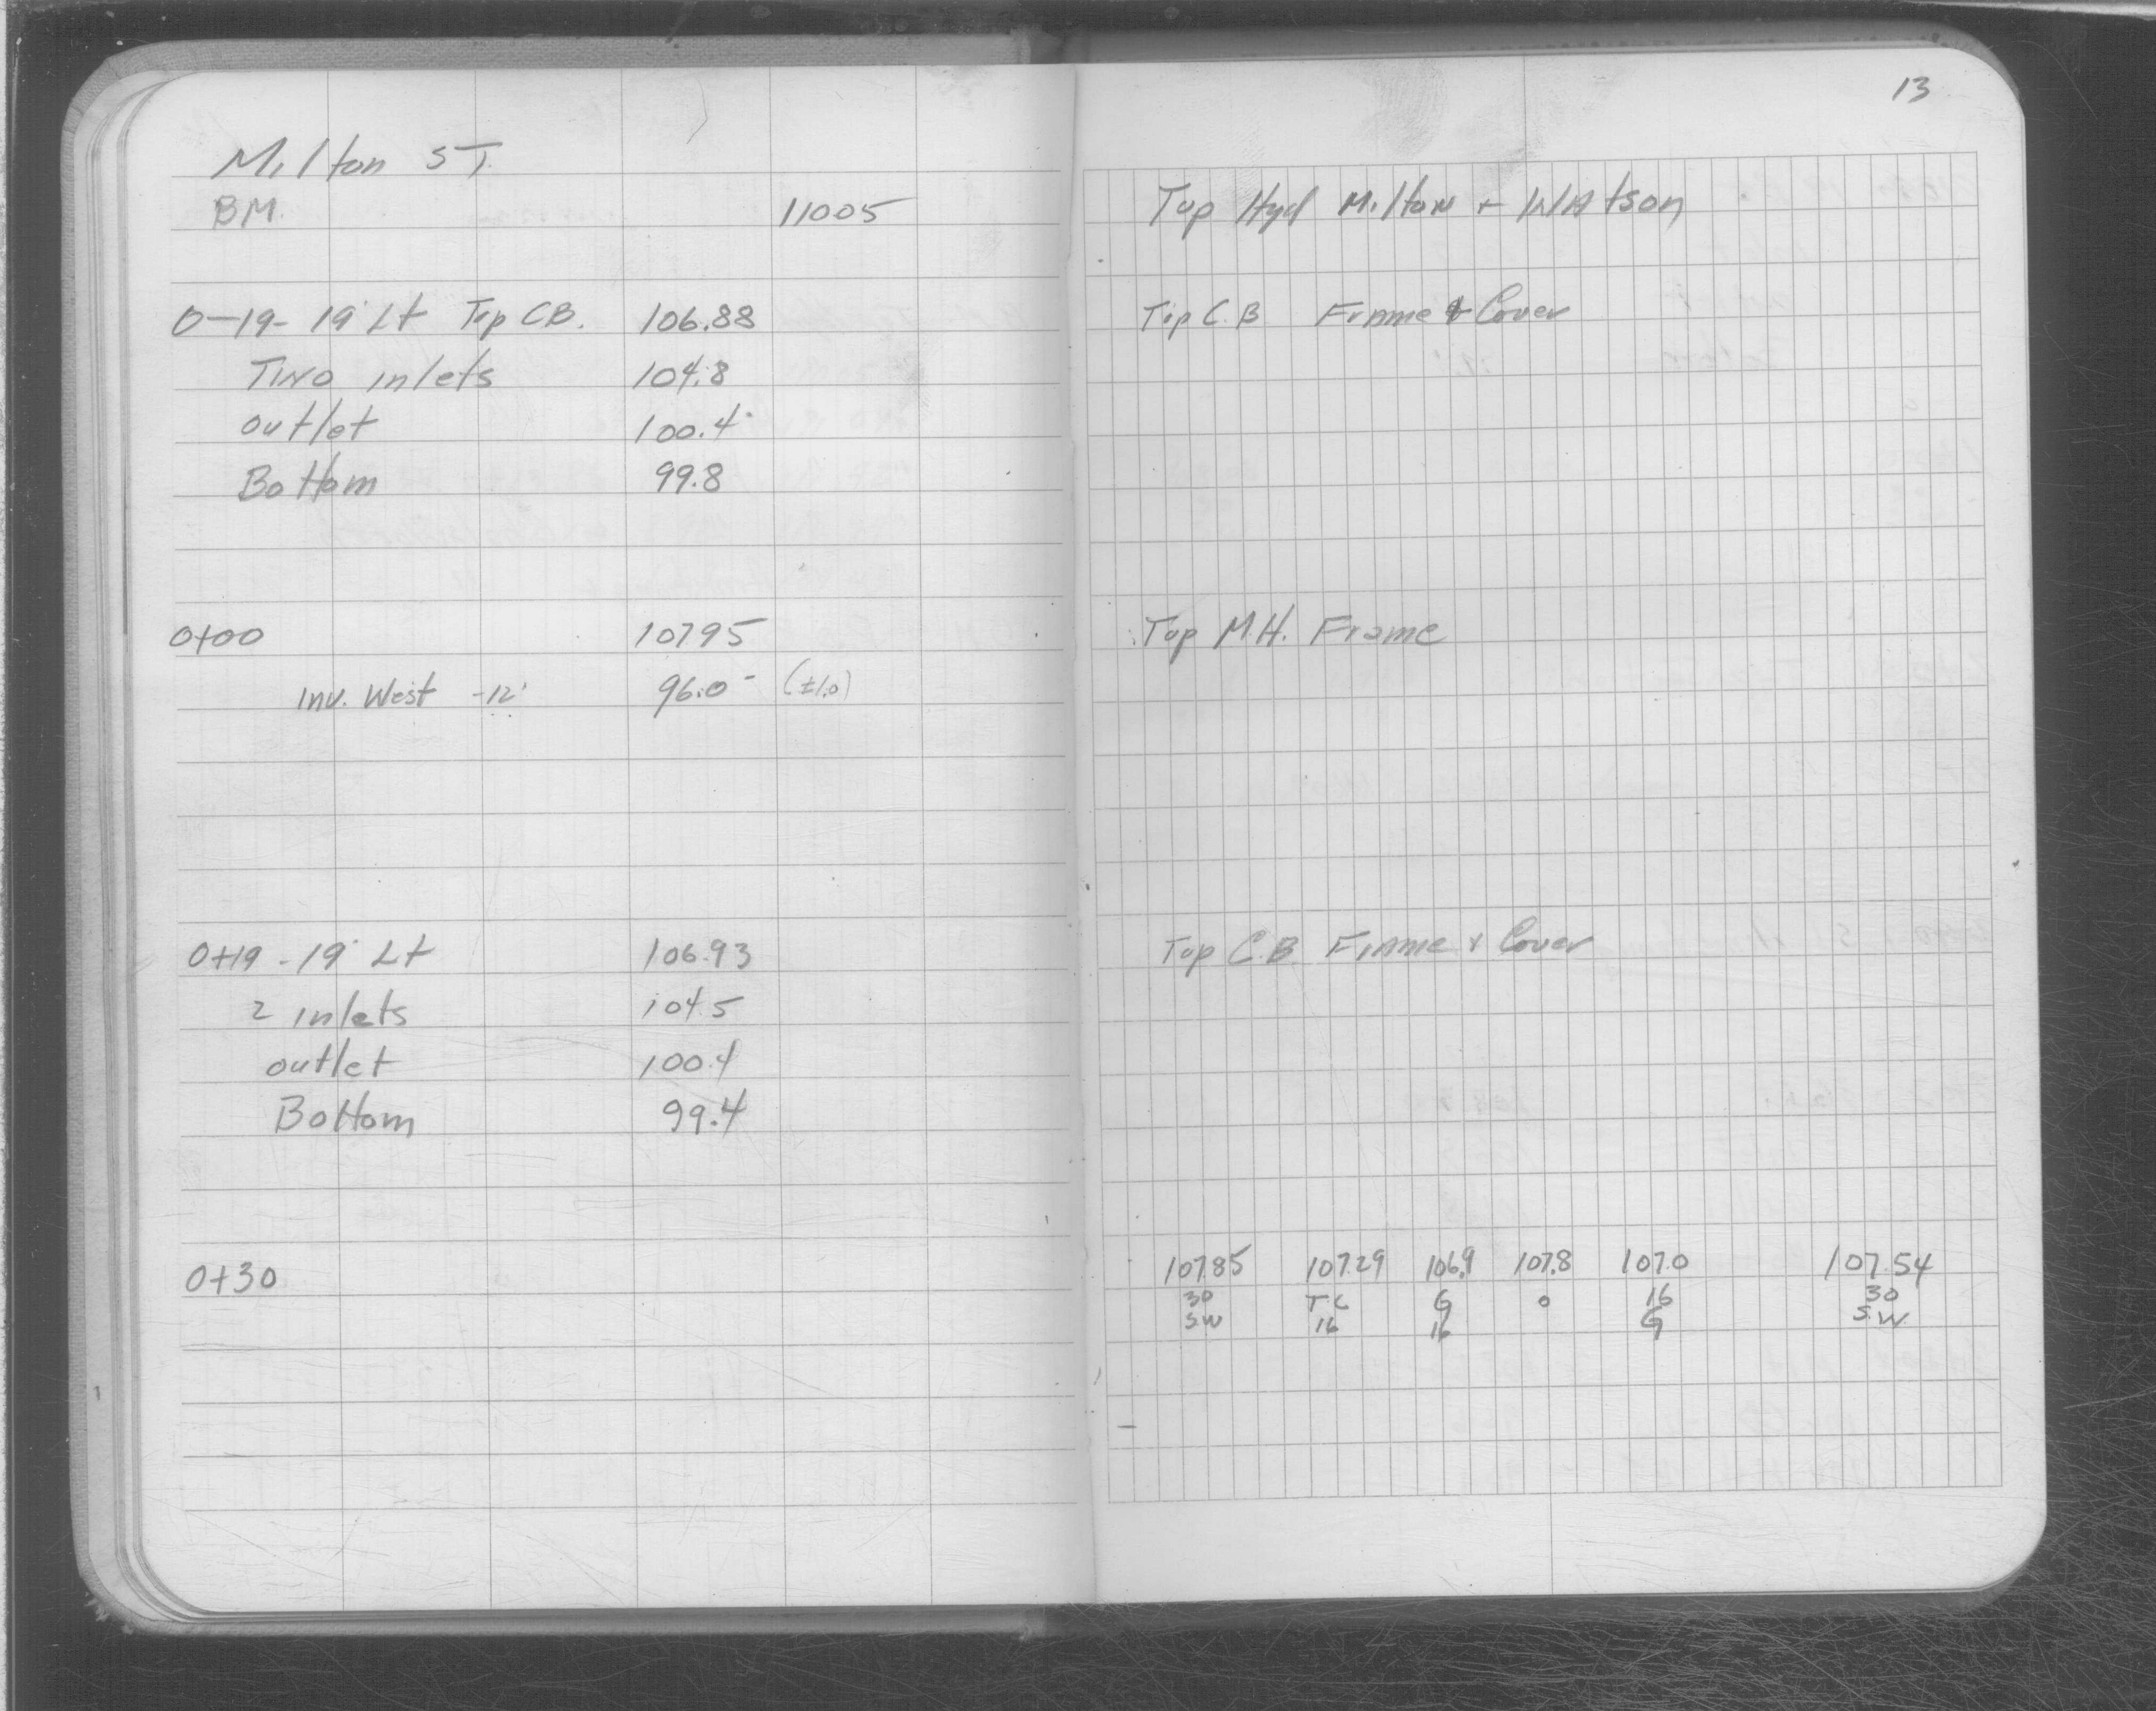 13
Milton ST.
BM. 11005 Top Hyd Milton + Watson
0-19- 19' Lt Top CB. 106.88 Top C.B Frame & Cover
Two inlets 104.8
outlet 100.4
Bottom 99.8
0+00 107.95 Top M.H. Frame
Inv. West -12' 96.0 - (±1.0)
0+19 - 19' Lt 106.93 Top C.B. Frame & Cover
2 inlets 104.5
outlet 100.4
Bottom 99.4
0+30 107.85 107.29 106.9 107.8 107.0 107.54
30 T.C G 0 16 30
S.W 16 16 G S.W.